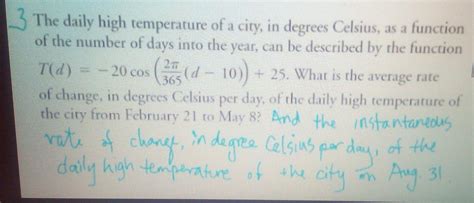 3 The daily high temperature of a city, in degrees Celsius, as a function
of the number of days into the year, can be described by the function
T(d) = −20 cos (2π/365 (d − 10)) + 25. What is the average rate
of change, in degrees Celsius per day, of the daily high temperature of
the city from February 21 to May 8? And the instantaneous
rate of change, in degree Celsius per day, of the
daily high temperature of the city on Aug. 31